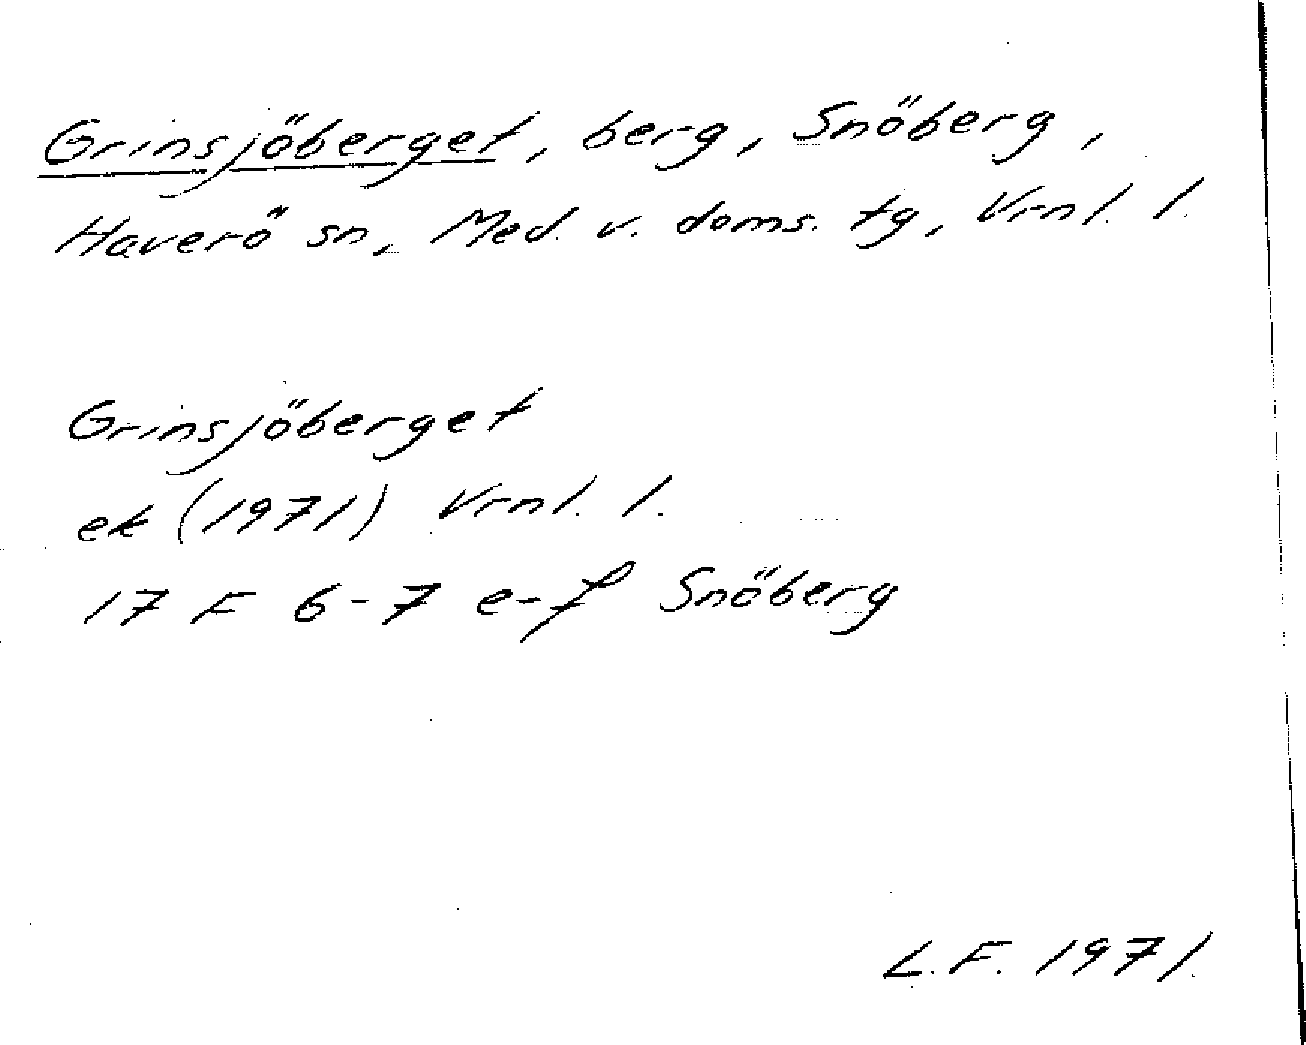 Grinsjöberget, berg, Snöberg,
Haverö sn, Med. v. doms. tg, Vrnl. l.
Grinsjöberget
ek (1971) Vrnl. l.
17 F 6-7 e-f Snöberg
L.F. 1971